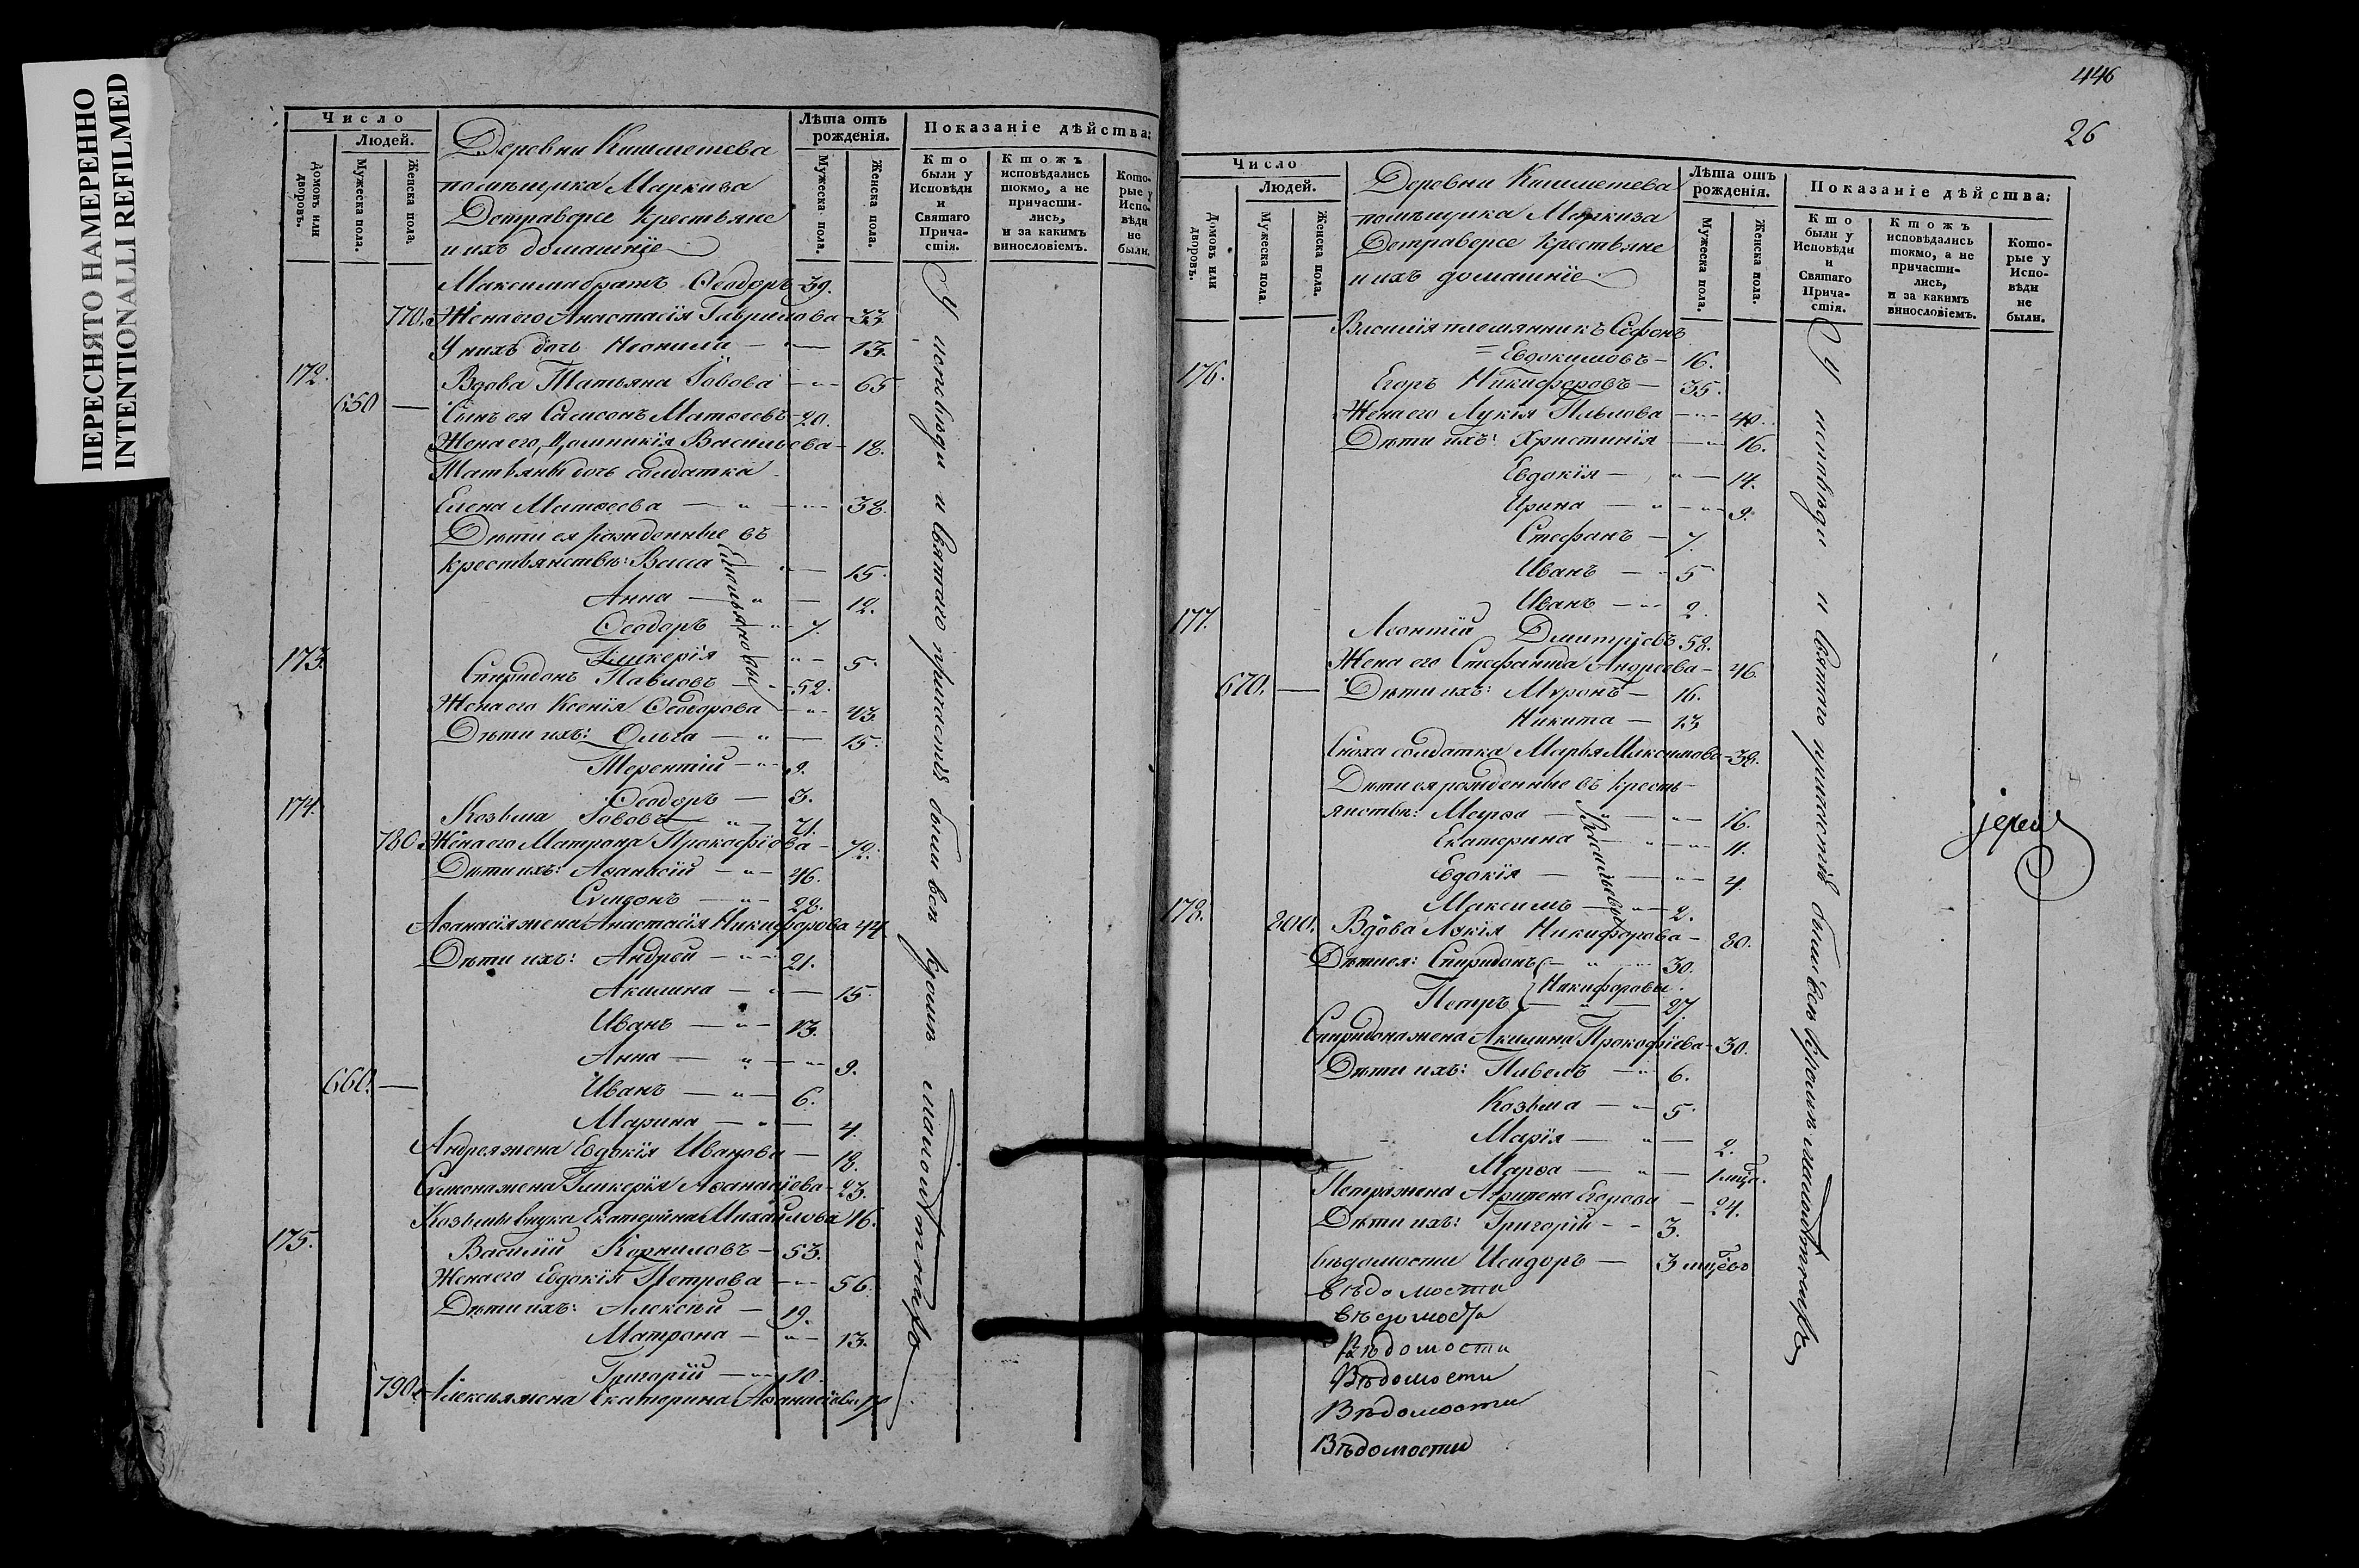 ПЕРЕСНЯТО НАМЕРЕННО
INTENTIONALLI REFILMED
Число
Людей.
домовъ или дворовъ.
Мужеска пола.
Женска пола.
Деревни Кишметева
помѣщика Маркиза
Детраверсе крестьяне
и ихъ домашнїе
Лѣта отъ рожденія.
Мужеска пола.
Женска пола.
Показаніе дѣйства:
Кто были у Исповѣди и Святаго Причастія.
Ктожъ исповѣдались токмо, а не причастились, и за какимъ винословіемъ.
Которые у Исповѣди не были.
Максима братъ Ѳеодоръ 39.
770. Жена его Анастасія Гаврилова 33.
У нихъ дочь Неонила 13.
172. Вдова Татьяна Іовова 65
650 Сынъ ея Самсонъ Матѳеевъ 20.
Жена его Домникїя Васильева 18.
Татьяны дочь солдатка
Елена Матѳеева 38.
Дѣти ея рожденные въ
крестьянствѣ: Васса 15.
Емельяновы
Анна 12.
Ѳеодоръ 7.
Гликерїя 5.
173. Спиридонъ Павловъ 52.
Жена его Ксенїя Ѳеодорова 43.
Дѣти ихъ: Ольга 15.
Терентїй 9.
Ѳеодоръ 3.
174. Козьма Іововъ 71.
780. Жена его Матрона Прокофїева 72.
Дѣти ихъ: Аѳанасїй 46.
Сѵмеонъ 22.
Аѳанасїя жена Анастасїя Никифорова 44
Дѣти ихъ: Андрей 21.
Акилина 15.
Иванъ 13.
Анна 9.
660. Иванъ 6.
Марина 4.
Андрея жена Евдокїя Иванова 18.
Сѵмеона жена Гликерїя Аѳанасїева 23.
Козьмы внука Екатерина Михайлова 16.
175. Василїй Корниловъ 53.
Жена его Евдокїя Петрова 56.
Дѣти ихъ: Алексѣй 19.
Матрона 13.
Григорїй 10.
790. Алексѣя жена Екатерина Аѳанасїева
У исповѣди и святаго причастїя были всѣ кромѣ малолѣтнихъ
446
26
Число
Людей.
Домовъ или дворовъ.
Мужеска пола.
Женска пола.
Деревни Кишметева
помѣщика Маркиза
Детраверсе крестьяне
и ихъ домашнїе
Лѣта отъ рожденія.
Мужеска пола.
Женска пола.
Показаніе дѣйства:
Кто были у Исповѣди и Святаго Причастія.
Ктожъ исповѣдались токмо, а не причастились, и за какимъ винословіемъ.
Которые у Исповѣди не были.
Василїя племянникъ
Евдокимовъ 16.
176. Егоръ Никифоровъ 35.
Жена его Лукїя Павлова 40.
Дѣти ихъ: Христинїя 16.
Евдокїя 14.
Ирина 9.
Стефанъ 7.
Иванъ 5
Иванъ 2.
177. Леонтїй Дмитрїевъ 58.
Жена его Стефанида Андреева 46.
670. Дѣти ихъ: Мѵронъ 16.
Никита 13
Сноха солдатка Марья Максимова 38.
Дѣти ея рожденные въ кресть-
янствѣ: Марѳа 16.
Васильевы
Екатерина 11.
Евдокїя 4.
Максимъ 2.
178. 800. Вдова Лукїя Никифорова 80.
Дѣти ея: Спиридонъ 30.
Никифоровы
Петръ 27.
Спиридона жена Акилина Прокофїева 30.
Дѣти ихъ: Павелъ 6.
Козьма 5.
Марїя 2.
Марѳа 1 мца.
Петра жена Агрипена Егорова 24.
Дѣти ихъ: Григорїй 3.
вѣдомости Исидоръ 3 мцовъ
вѣдомости
вѣдомости
вѣдомости
Вѣдомости
Вѣдомости
Вѣдомости
У исповѣди и святаго причастїя были всѣ кромѣ малолѣтнихъ
іерей